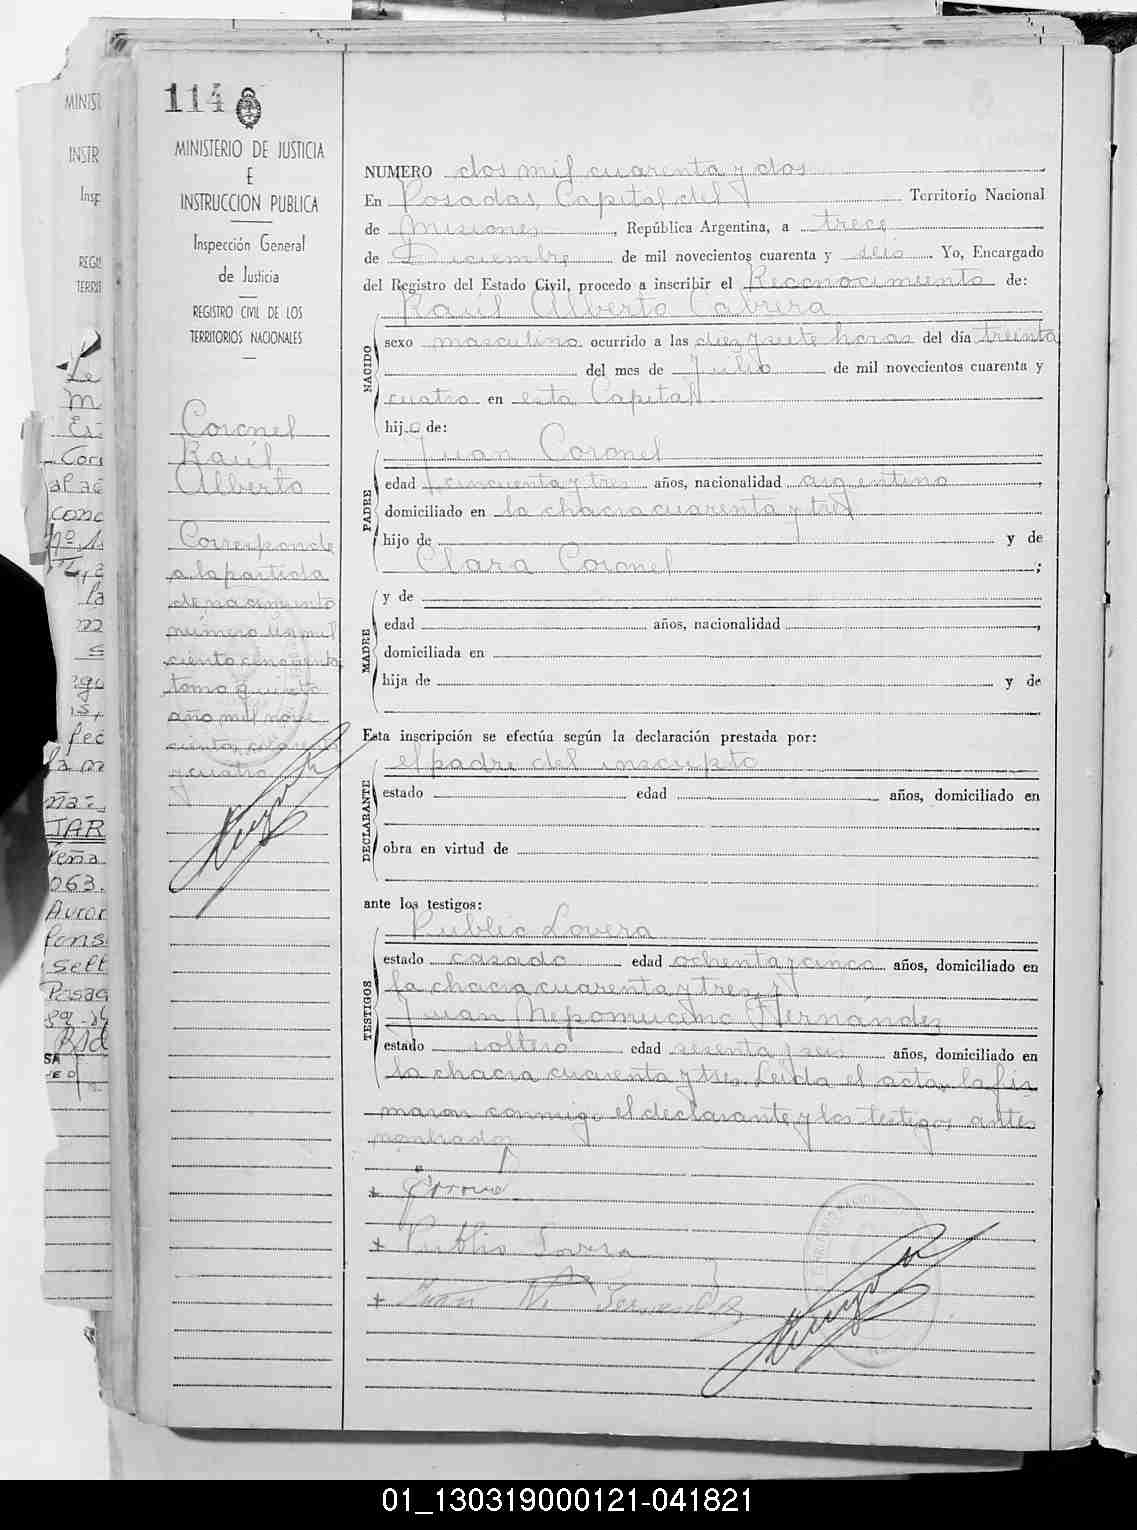 114
MINISTERIO DE JUSTICIA
E
INSTRUCCION PUBLICA
Inspección General
de Justicia
REGISTRO CIVIL DE LOS
TERRITORIOS NACIONALES
Coronel
Raúl
Alberto
Corresponde
a la partida
de nacimiento
número un mil
ciento cincuenta
tomo
año mil nove
cientos
y cuatro
NUMERO dos mil cuarenta y dos
En Posadas, Capital del Territorio Nacional
de Misiones, República Argentina, a trece
de Diciembre de mil novecientos cuarenta y seis Yo, Encargado
del Registro del Estado Civil, procedo a inscribir el Reconocimiento de:
Raúl Alberto Cabrera
NACIDO
sexo masculino ocurrido a las diez y siete horas del día treinta
del mes de Julio de mil novecientos cuarenta y
cuatro en esta Capital
hijo de:
PADRE
Juan Coronel
edad cincuenta y tres años, nacionalidad argentino,
domiciliado en la chacra cuarenta y tres
hijo de y de
Clara Coronel;
MADRE
y de
edad años, nacionalidad,
domiciliada en
hija de y de
Esta inscripción se efectúa según la declaración prestada por:
el padre del inscripto
DECLARANTE
estado edad años, domiciliado en
obra en virtud de
ante los testigos:
TESTIGOS
Publio Lovera
estado casado edad ochenta y cinco años, domiciliado en
la chacra cuarenta y tres y
Juan Nepomuceno Hernández
estado soltero edad sesenta y seis años, domiciliado en
la chacra cuarenta y tres. Leída el acta, la fir
maron conmigo el declarante y los testigos antes
nombrados
+
+ Publio Lovera
+ Juan N.
MINIST
INSTR
Insp
REGIS
TERRI
01_130319000121-041821